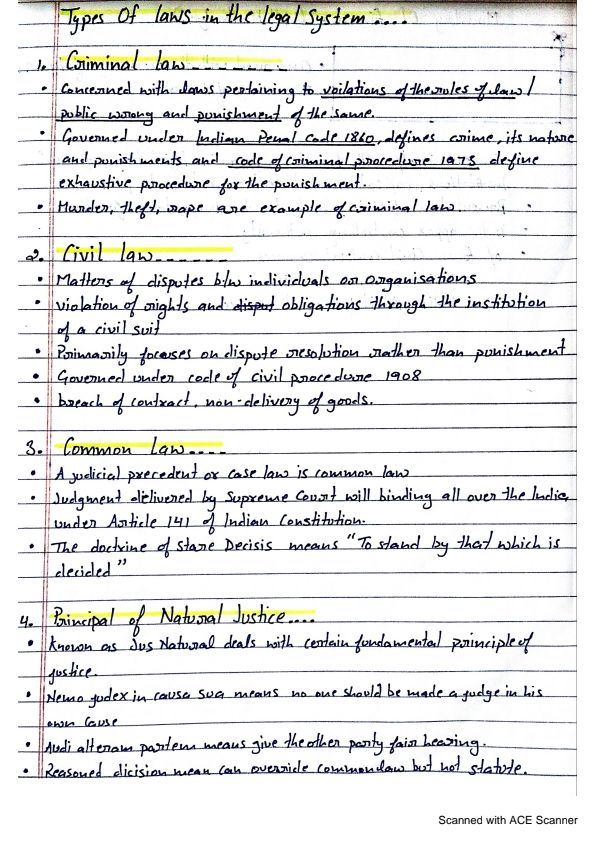 Types Of laws in the legal System....
1. Criminal law-------
• Concerned with laws pertaining to voilations of the rules of law/
public wrong and punishment of the same.
• Governed under Indian Penal Code 1860, defines crime, its nature
and punishments and code of criminal procedure 1973 define
exhaustive procedure for the punishment.
• Murder, theft, rape are example of criminal law.
2. Civil law------
• Matters of disputes b/w individuals or organisations
• violation of rights and disput obligations through the institution
of a civil suit
• Primarily focuses on dispute resolution rather than punishment
• Governed under code of civil procedure 1908
• breach of contract, non-delivery of goods.
3. Common Law....
• A judicial precedent or case law is common law
• Judgment delivered by Supreme Court will binding all over the India
under Article 141 of Indian Constitution.
• The doctrine of Stare Decisis means "To stand by that which is
decided"
4. Principal of Natural Justice....
• Known as Jus Natural deals with certain fundamental principle of
justice.
• Nemo judex in causa sua means no one should be made a judge in his
own cause
• Audi alteram partem means give the other party fair hearing.
• Reasoned dicision mean can override common law but not statute.
Scanned with ACE Scanner